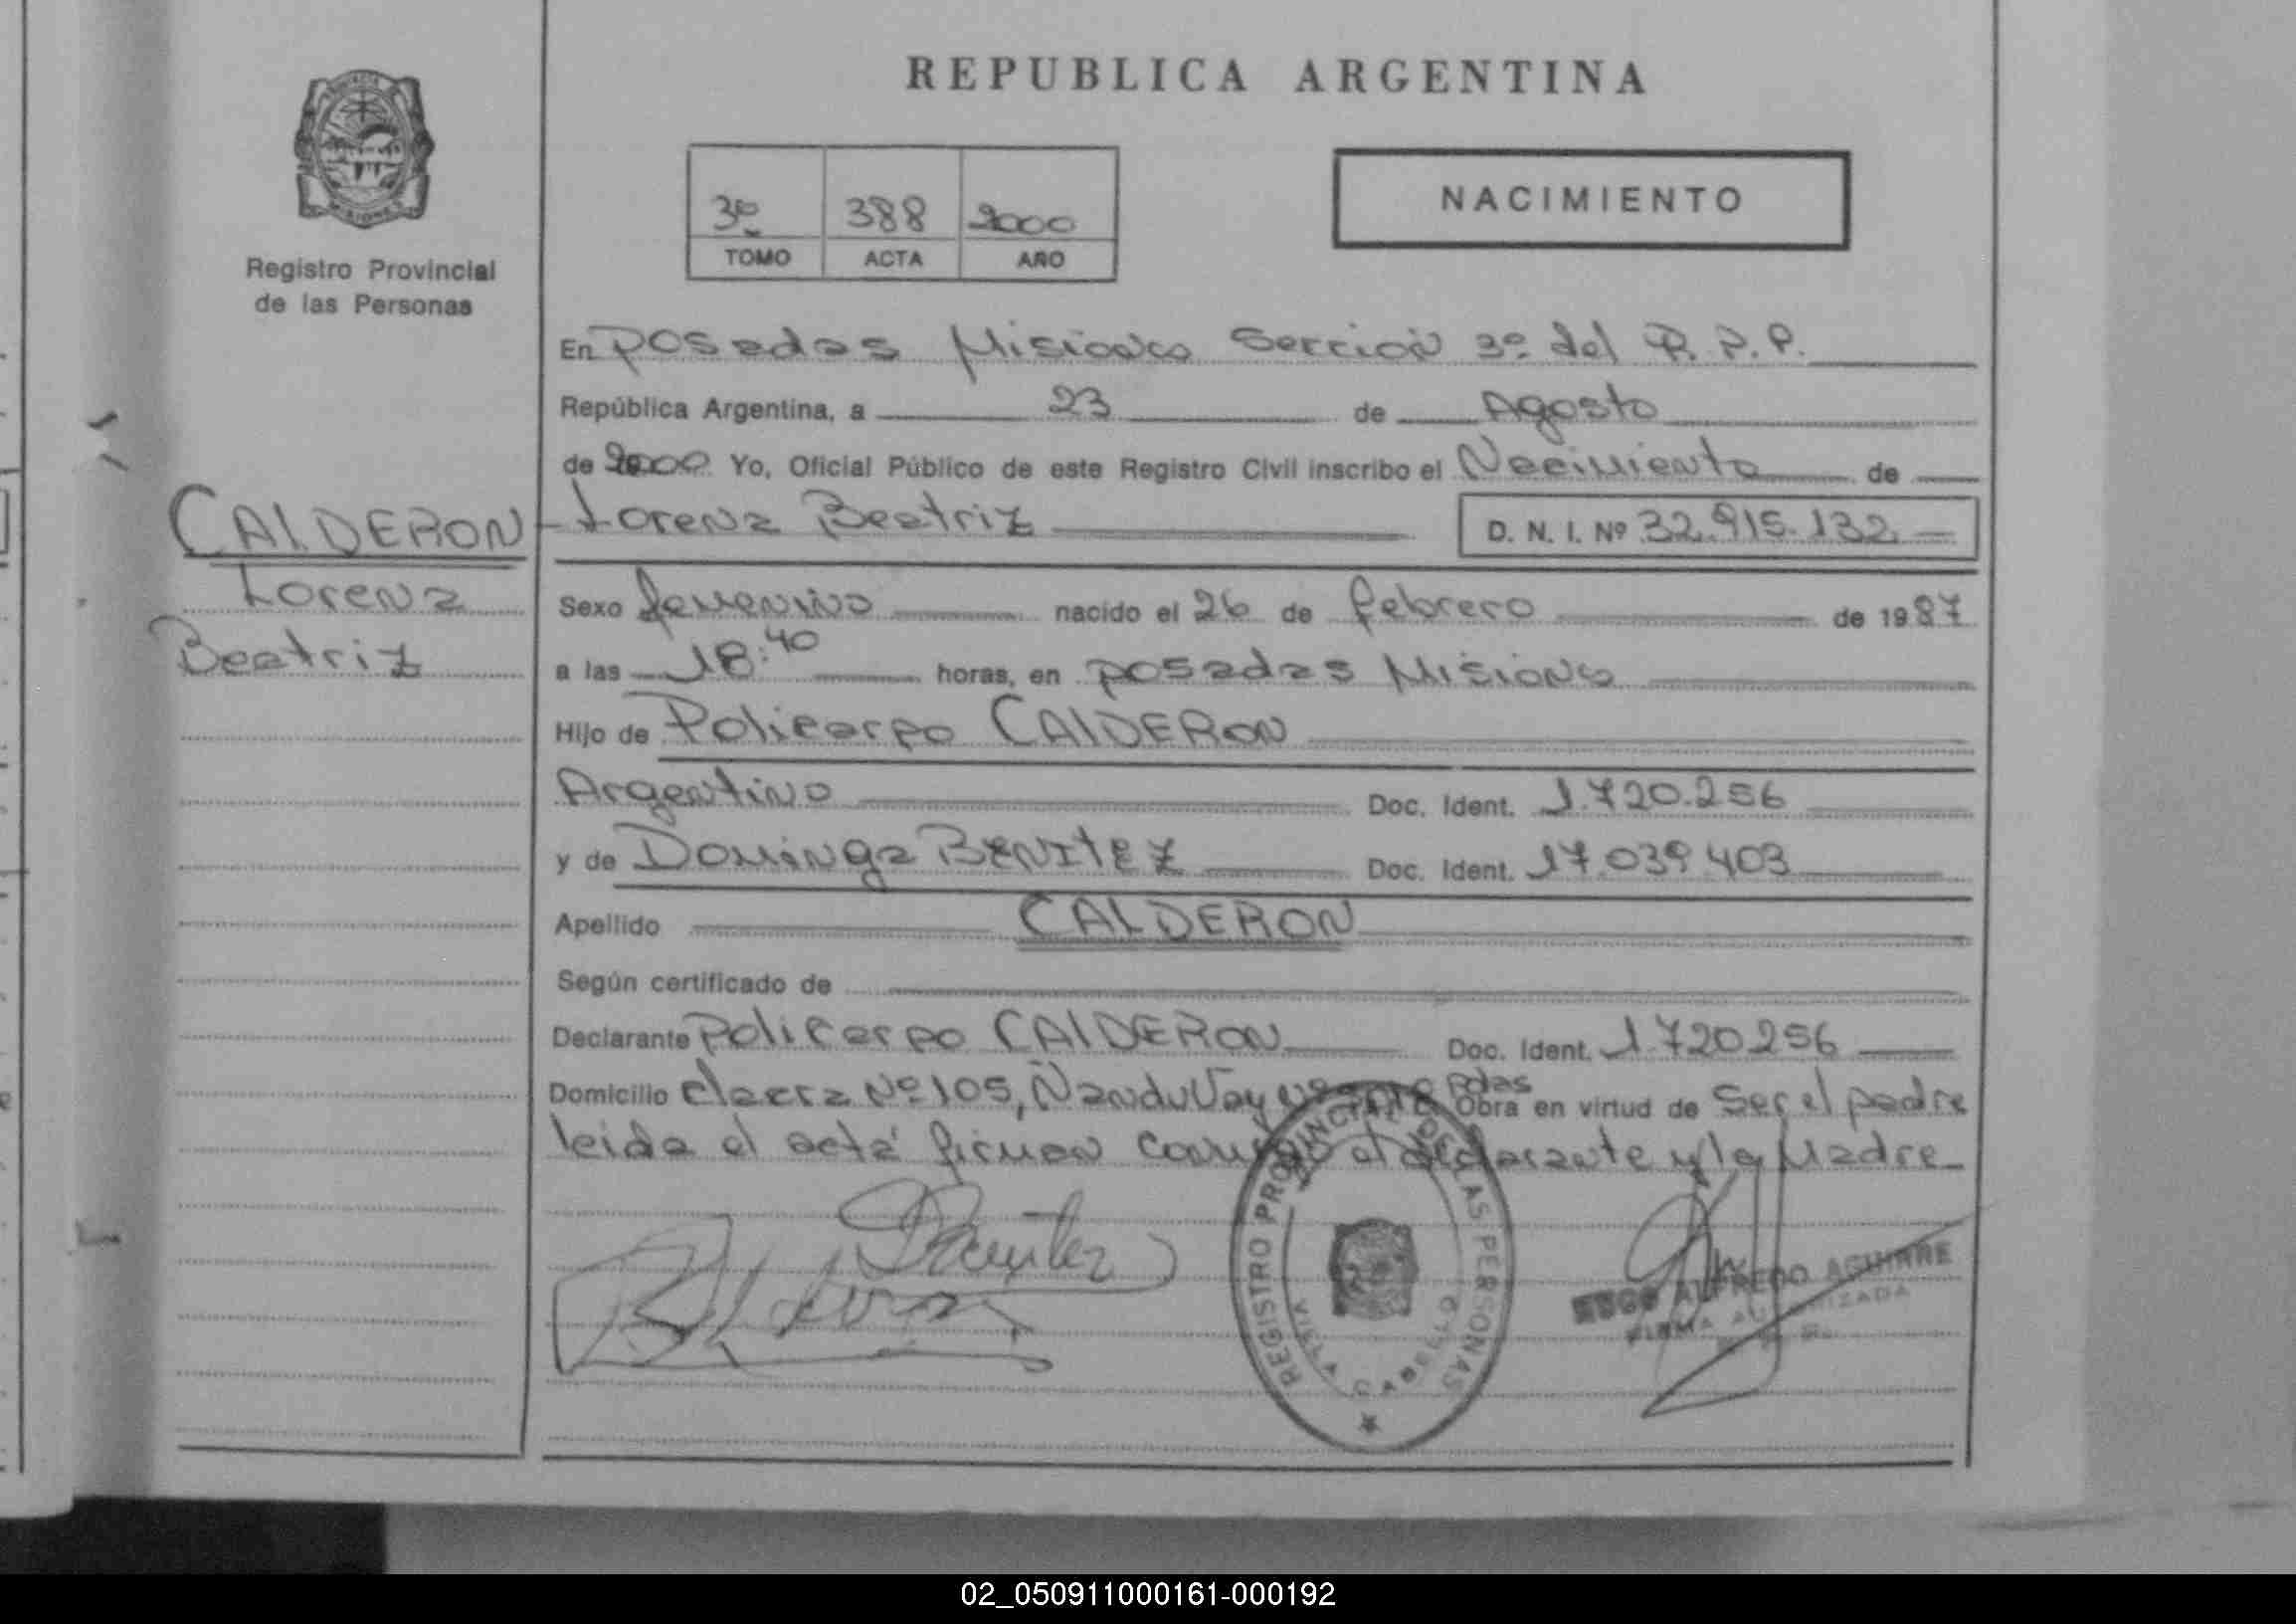 REPUBLICA ARGENTINA
NACIMIENTO
3º 388 2000
TOMO ACTA AÑO
Registro Provincial
de las Personas
CALDERON
Lorena
Beatriz
En Posadas Misiones Sección 3º del R. P. P.
República Argentina, a 23 de Agosto
de 2000 Yo, Oficial Público de este Registro Civil inscribo el Nacimiento de
Lorena Beatriz D. N. I. Nº 32.915.132
Sexo femenino nacido el 26 de febrero de 1987
a las 18:40 horas, en Posadas Misiones
Hijo de Policarpo CALDERON
Argentino Doc. Ident. 1.720.256
y de Dominga BENITEZ Doc. Ident. 17.039.403
Apellido CALDERON
Según certificado de
Declarante Policarpo CALDERON Doc. Ident. 1.720.256
Domicilio chacra Nº 105, Ñanduvay Pdas Obra en virtud de ser el padre
leida el acta firman conmigo el declarante y la Madre
REGISTRO PROVINCIAL DE LAS PERSONAS
VILLA CABELLO
ALFREDO AGUIRRE
FIRMA AUTORIZADA
02_050911000161-000192